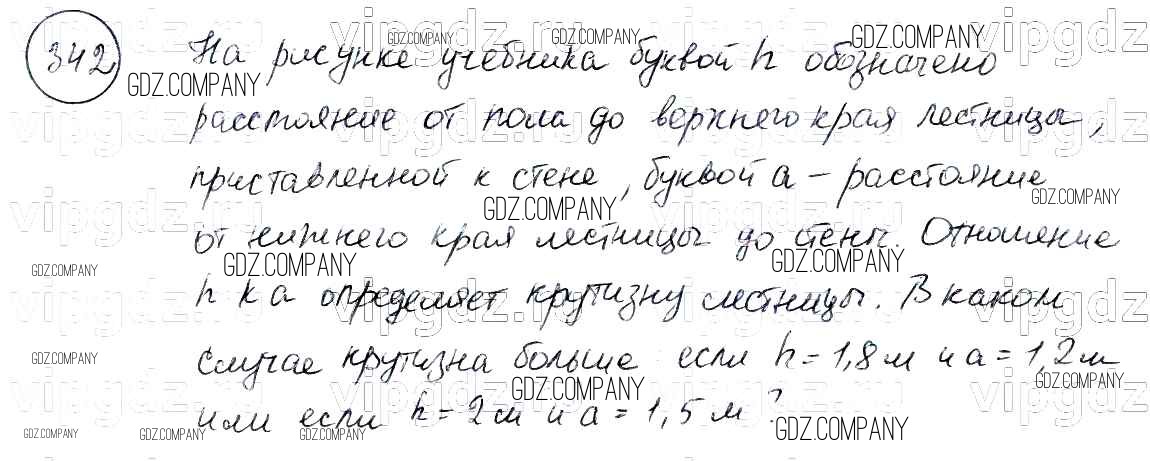 342 На рисунке учебника буквой h обозначено
расстояние от пола до верхнего края лестницы,
приставленной к стене, буквой а – расстояние
от нижнего края лестницы до стены. Отношение
h к а определяет крутизну лестницы. В каком
случае крутизна больше если h = 1,8 м и а = 1,2 м
или если h = 2 м и а = 1,5 м?
vipgdz.ru
GDZ.COMPANY